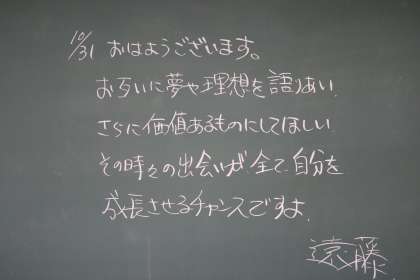 10/31 おはようございます。
お互いに夢や理想を語りあい、
さらに価値あるものにしてほしい
その時々の出会いが、全て、自分を
成長させるチャンスですよ。
遠藤